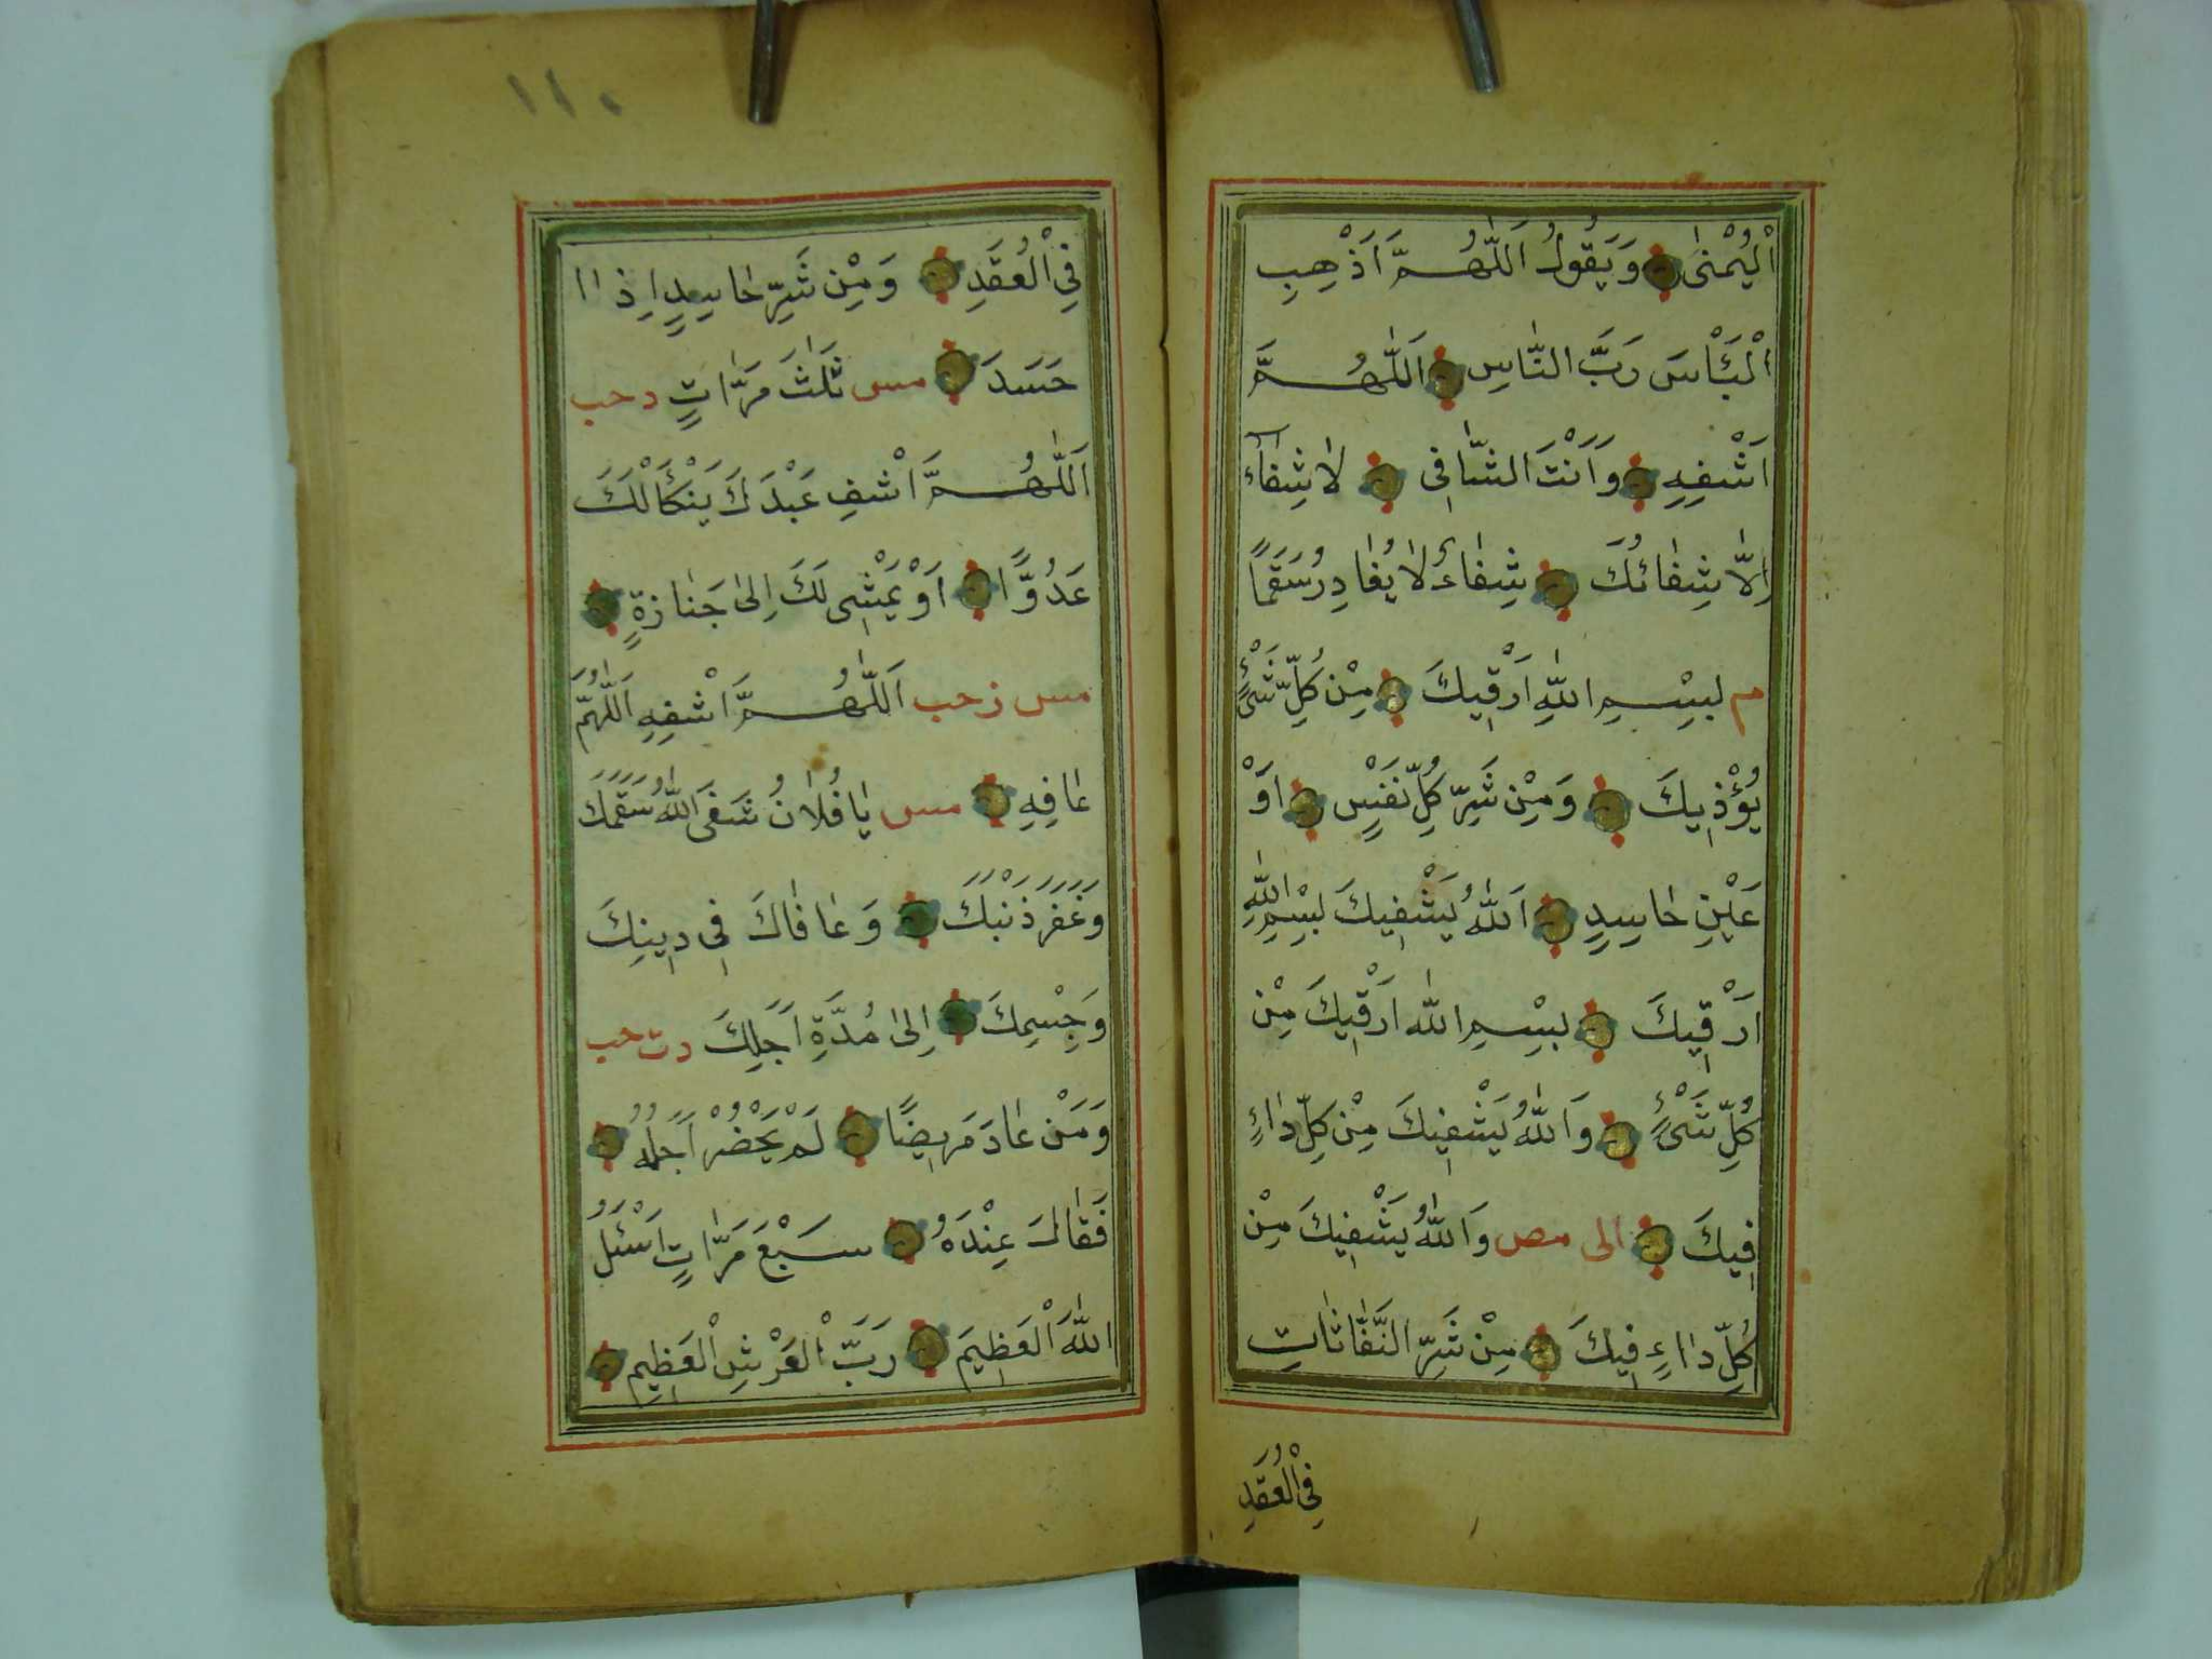 اَلْيُمْنٰى وَيَقُولُ اَللّٰهُمَّ اَذْهِبِ
الْبَأْسَ رَبَّ النَّاسِ اَللّٰهُمَّ
اَشْفِهِ وَاَنْتَ الشَّافِى لَا شِفَآءَ
اِلَّا شِفَائُكَ شِفَاءً لَا يُغَادِرُ سَقَمًا
م بِسْمِ اللّٰهِ اَرْقِيكَ مِنْ كُلِّ شَىْءٍ
يُؤْذِيكَ وَمِنْ شَرِّ كُلِّ نَفْسٍ اَوْ
عَيْنِ حَاسِدٍ اَللّٰهُ يَشْفِيكَ بِسْمِ اللّٰهِ
اَرْقِيكَ بِسْمِ اللّٰه اَرْقِيكَ مِنْ
كُلِّ شَىْءٍ وَاَللّٰهُ يَشْفِيكَ مِنْ كُلِّ دَاءٍ
فِيكَ الى مص وَاَللّٰهُ يَشْفِيكَ مِنْ
كُلِّ دَاءٍ فِيكَ مِنْ شَرِّ النَّفَّاثَاتِ
فِى الْعُقَدِ
١١٠
فِى الْعُقَدِ وَمِنْ شَرِّ حَاسِدٍ اِذَا
حَسَدَ مس ثَلٰثَ مَرَّاتٍ د حب
اَللّٰهُمَّ اَشْفِ عَبْدَكَ يَنْكَأْ لَكَ
عَدُوًّا اَوْ يَمْشِى لَكَ اِلٰى جَنَازَةٍ
مس ز حب اَللّٰهُمَّ اَشْفِهِ اَللّٰهُمَّ
عَافِهِ مس يَا فُلَانُ شَفَى اللّٰهُ سَقَمَكَ
وَغَفَرَ ذَنْبَكَ وَعَافَاكَ فِى دِينِكَ
وَجِسْمِكَ اِلٰى مُدَّةِ اَجَلِكَ دت حب
وَمَنْ عَادَ مَرِيضًا لَمْ يَحْضُرْ اَجَلُهُ
فَقَالَ عِنْدَهُ سَبْعَ مَرَّاتٍ اَسْئَلُ
اللّٰهَ الْعَظِيمَ رَبَّ الْعَرْشِ الْعَظِيمِ